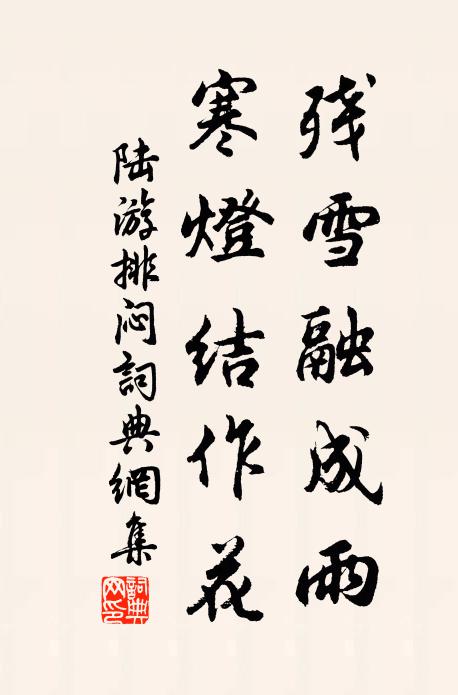 残雪融成雨
寒燈結作花
陆游排闷詞典網集
詞典网印